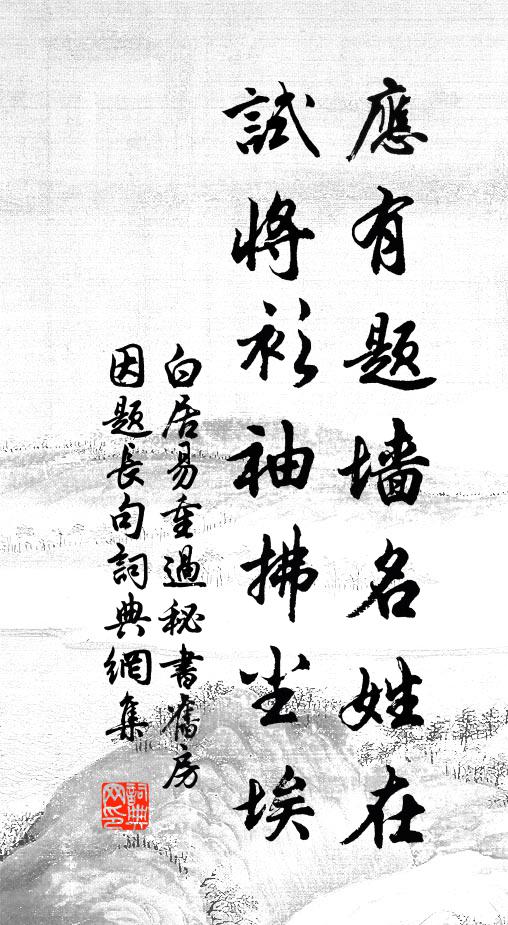 應有题墙名姓在
試將衫袖拂尘埃
白居易重過秘書舊房
因题長句詞典網集
詞典网印